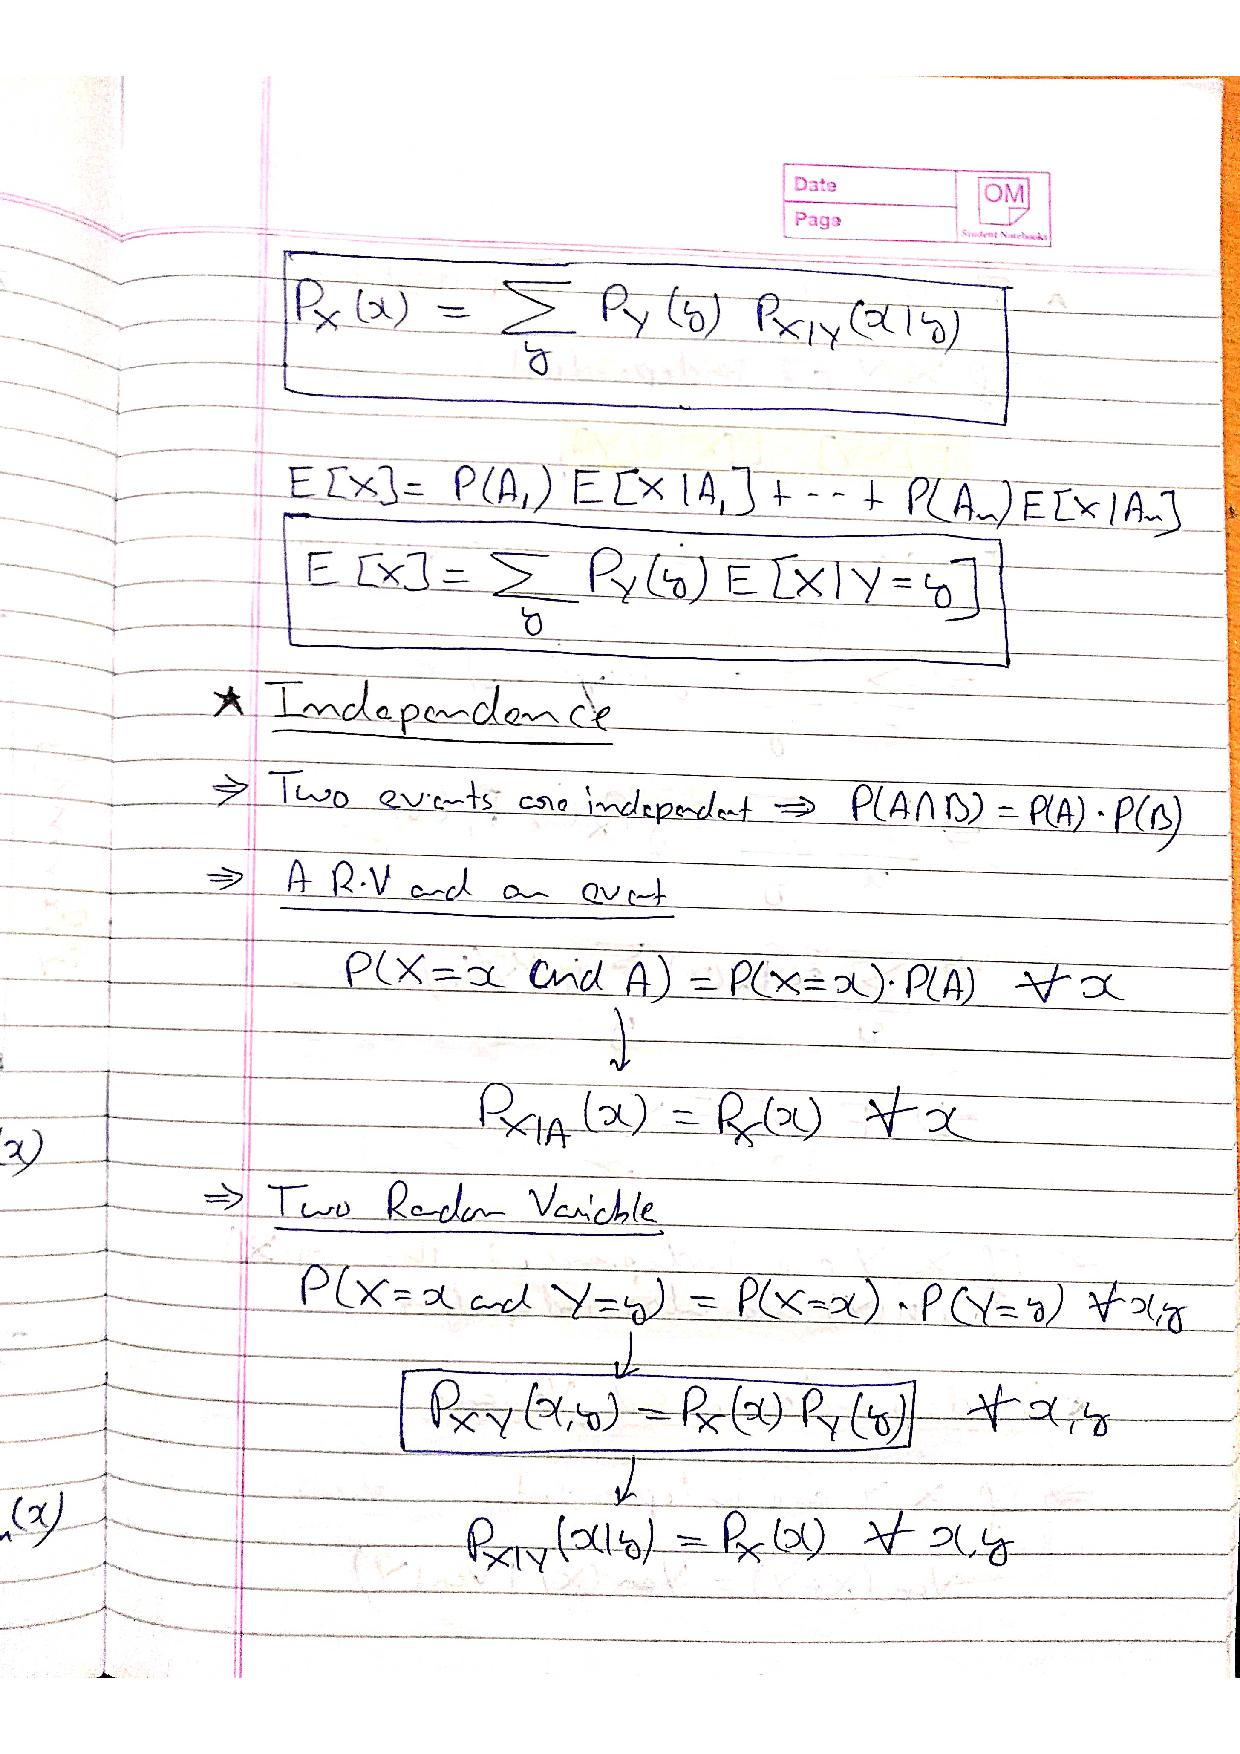 Date
Page
OM
Student Notebooks
P_X(x) = ∑_y P_Y(y) P_{X|Y}(x|y)
E[X] = P(A₁) E[X|A₁] + --- + P(Aₙ) E[X|Aₙ]
E[X] = ∑_y P_Y(y) E[X|Y=y]
★ Independence
⇒ Two events are independent ⇒ P(A∩B) = P(A)·P(B)
⇒ A R.V and an event
P(X=x and A) = P(X=x)·P(A) ∀ x
↓
P_{X|A}(x) = P_X(x) ∀ x
(x)
⇒ Two Random Variable
P(X=x and Y=y) = P(X=x)·P(Y=y) ∀ x,y
↓
P_{XY}(x,y) = P_X(x) P_Y(y) ∀ x,y
↓
(x)
P_{X|Y}(x|y) = P_X(x) ∀ x,y